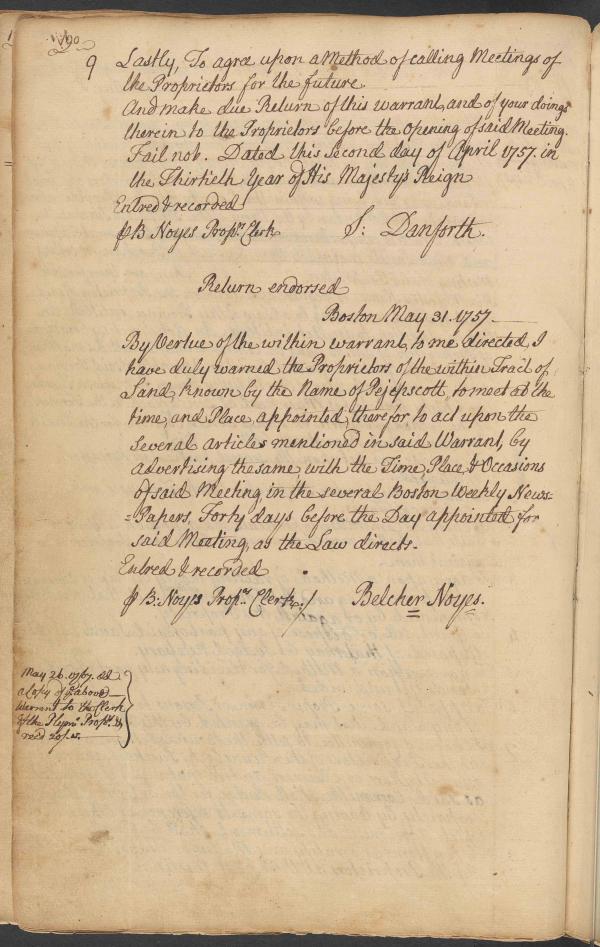 190
9 Lastly, To agree upon a Method of calling Meetings of
the Proprietors for the future
And make due Return of this warrant, and of your doings
therein to the Proprietors before the opening of said Meeting.
Fail not. Dated this Second day of April 1757. in
the Thirtieth Year of His Majesty's Reign
Entred & recorded
⅌ B Noyes Proprs. Clerk S: Danforth.
Return endorsed
Boston May 31. 1757.
By Vertue of the within warrant, to me directed, I
have duly warned the Proprietors of the within Tract of
Land, known by the Name of Pejepscott, to meet at the
time, and Place, appointed, therefor, to act upon the
several articles mentioned in said Warrant, by
advertising the same with the Time, Place, & Occasions
of said Meeting, in the several Boston Weekly News=
=Papers, Forty days before the Day appointed for
said Meeting, as the Law directs.
Entred & recorded
⅌ B: Noyes Prop rs. Clerk Belcher Noyes.
May 26. 1767. dd
a Copy of ye above
Warrant to the Clerk
of the Plym o. Prop rs. &
recd 20/.